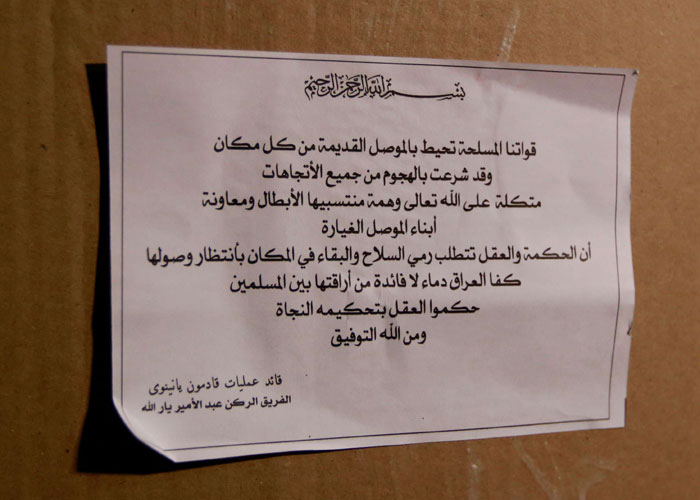 بسم الله الرحمن الرحيم
قواتنا المسلحة تحيط بالموصل القديمة من كل مكان
وقد شرعت بالهجوم من جميع الأتجاهات
متكلة على الله تعالى وهمة منتسبيها الأبطال ومعاونة
أبناء الموصل الغيارة
أن الحكمة والعقل تتطلب رمي السلاح والبقاء في المكان بأنتظار وصولها
كفا العراق دماء لا فائدة من أراقتها بين المسلمين
حكموا العقل بتحكيمه النجاة
ومن الله التوفيق
قائد عمليات قادمون يانينوى
الفريق الركن عبد الأمير يار الله